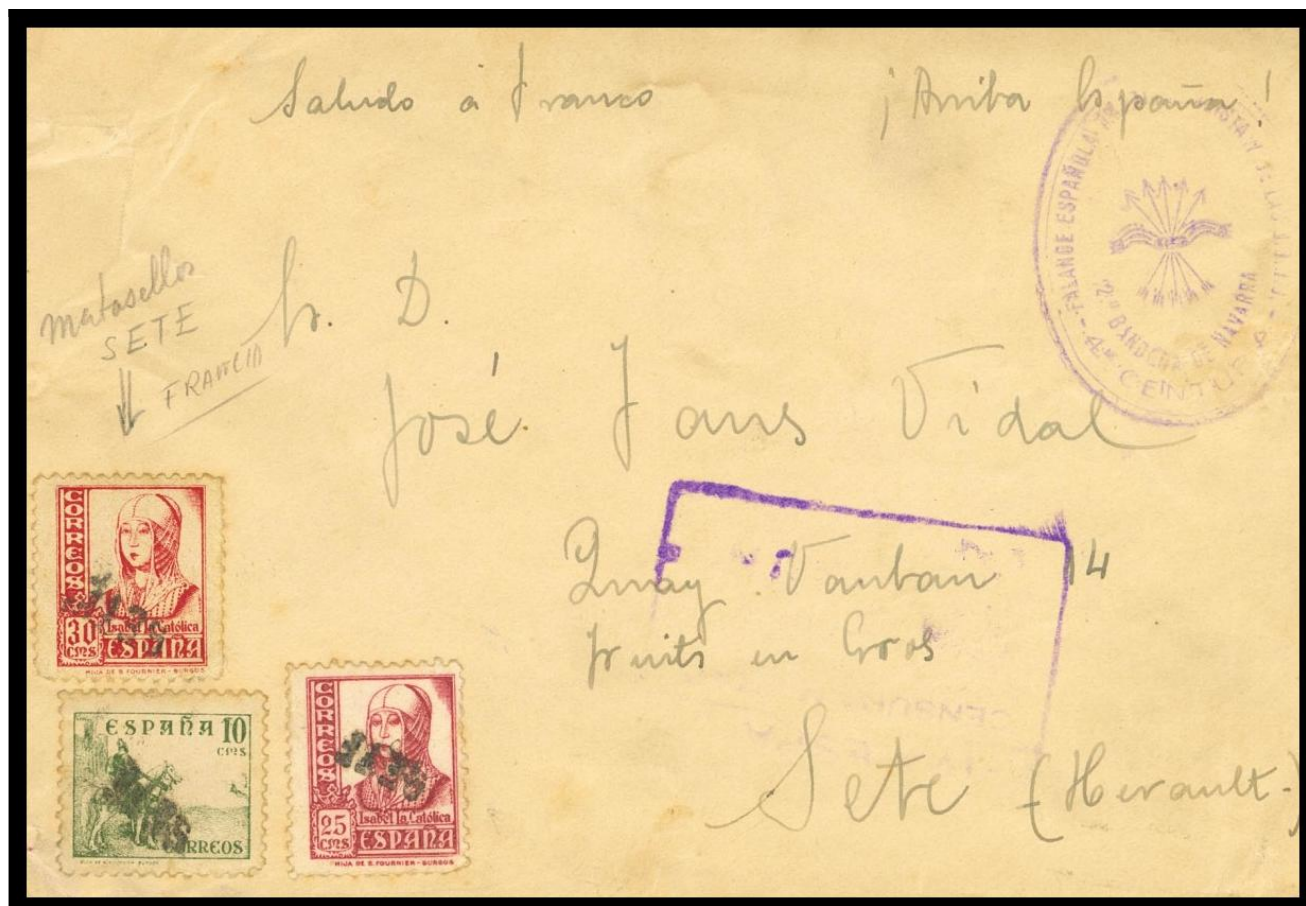 Saludo a Franco ¡Arriba España!
FALANGE ESPAÑOLA
2ª BANDERA DE NAVARRA
4ª CENTURIA
matasellos
SETE
FRANCIA
Sr. D.
José Jans Vidal
Quay Vauban 14
Fruits en Gros
CENSURA
Sete (Herault-
CORREOS
30
CMS
Isabel la Católica
ESPAÑA
HIJA DE B. FOURNIER - BURGOS
SETE
ESPAÑA 10
CMS
CORREOS
CORREOS
SETE
25
CMS
Isabel la Católica
ESPAÑA
HIJA DE B. FOURNIER - BURGOS